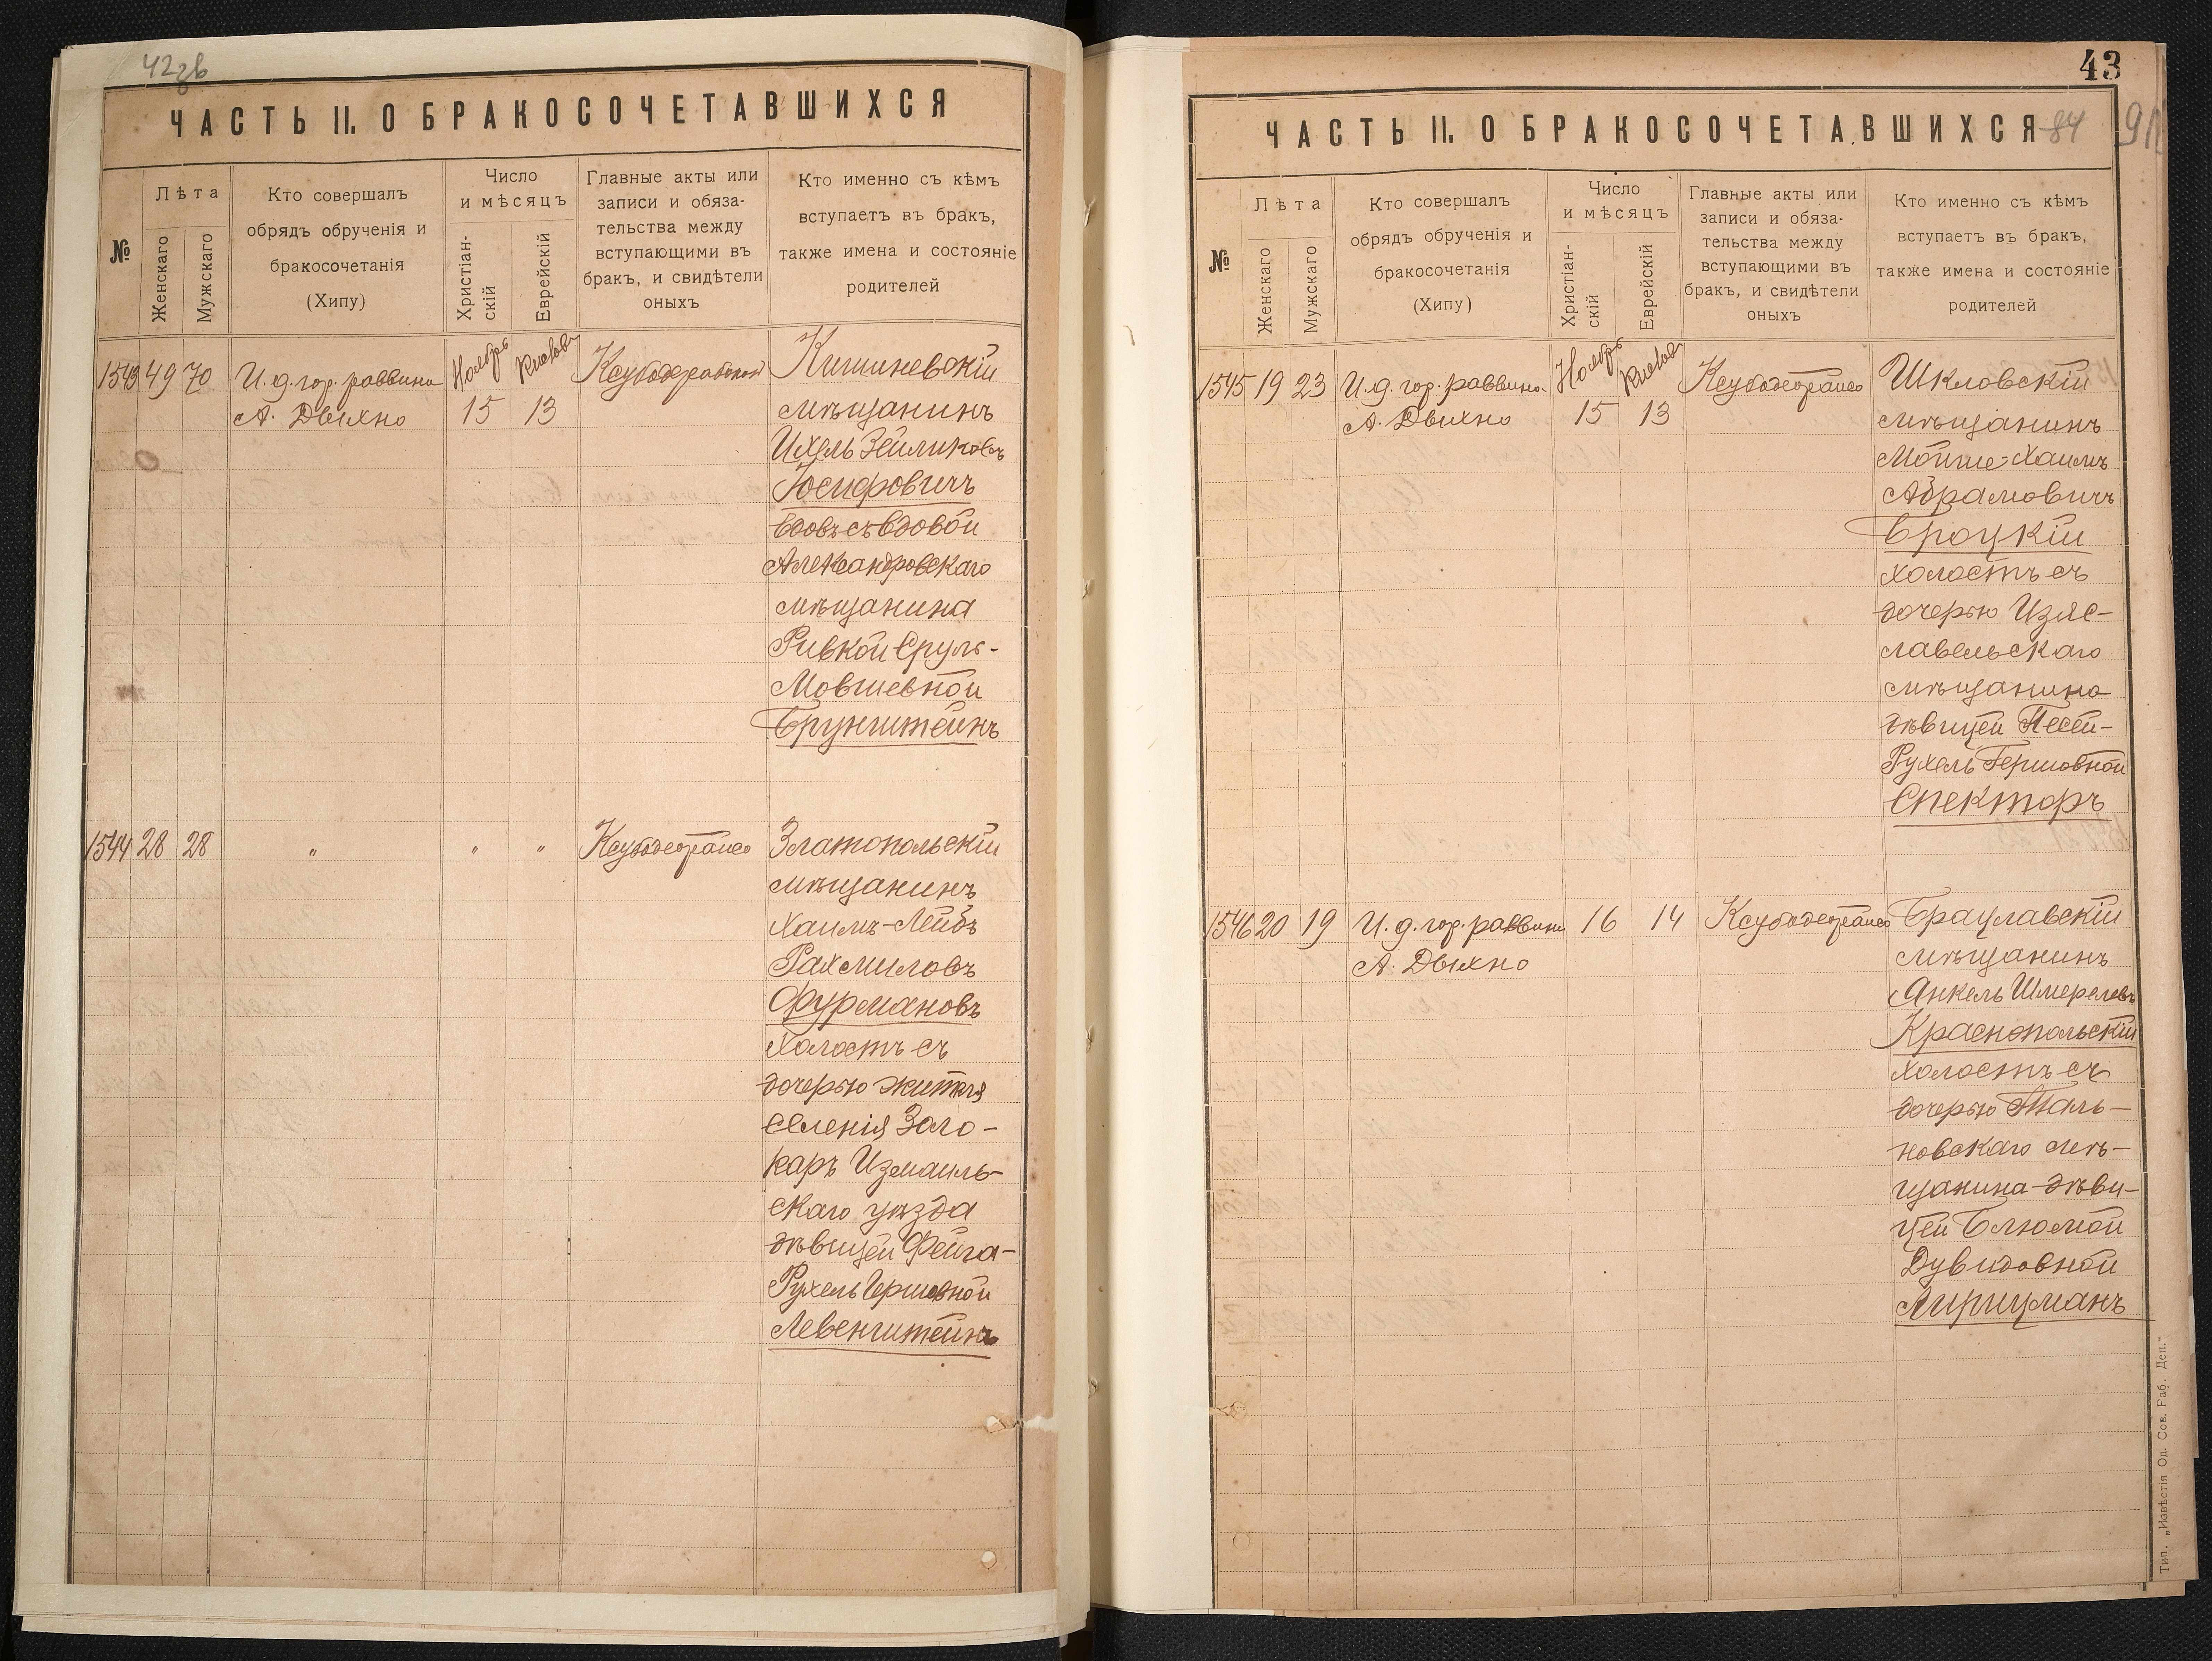 42зв
ЧАСТЬ II. О БРАКОСОЧЕТАВШИХСЯ
№
Лѣта
Женскаго
Мужскаго
Кто совершалъ
обрядъ обрученія и
бракосочетанія
(Хипу)
Число
и мѣсяцъ
Христіан-
скій
Еврейскій
Главные акты или
записи и обяза-
тельства между
вступающими въ
бракъ, и свидѣтели
оныхъ
Кто именно съ кѣмъ
вступаетъ въ бракъ,
также имена и состояніе
родителей
1543 49 70 И. д. гор. раввина Ноябрь Кислевъ Кишиневскій
А. Двихно 15 13 мѣщанинъ
Ихель Зейликовъ
Іосифовичъ
вдовъ съ вдовой
Александровскаго
мѣщанина
Ривкой Сруль-
Мовшевной
Брунштейнъ
1544 28 28 " " " Златопольскій
мѣщанинъ
Хаимъ-Лейбъ
Рахмиловъ
Фурмановъ
холостъ съ
дочерью жителя
селенія Зало-
каръ Измаиль-
скаго уѣзда
дѣвицей Фейга-
Рухель Гершовной
Левенштейнъ
43
84
ЧАСТЬ II. О БРАКОСОЧЕТАВШИХСЯ
№
Лѣта
Женскаго
Мужскаго
Кто совершалъ
обрядъ обрученія и
бракосочетанія
(Хипу)
Число
и мѣсяцъ
Христіан-
скій
Еврейскій
Главные акты или
записи и обяза-
тельства между
вступающими въ
бракъ, и свидѣтели
оныхъ
Кто именно съ кѣмъ
вступаетъ въ бракъ,
также имена и состояніе
родителей
1545 19 23 И. д. гор. раввина Ноябрь Кислевъ Шкловскій
А. Двихно 15 13 мѣщанинъ
Мойше-Хаимъ
Абрамовичъ
Броцкій
холостъ съ
дочерью Изяс-
лавельскаго
мѣщанина
дѣвицей Песей-
Рухель Гершовной
Спекторъ
1546 20 19 И. д. гор. раввина 16 14 Брацлавскій
А. Двихно мѣщанинъ
Янкель Шмерелевъ
Краснопольскій
холостъ съ
дочерью Таль-
новскаго мѣ-
щанина дѣви-
цей Блюмой
Дувидовной
Лирцманъ
Тип. „Извѣстія Од. Сов. Раб. Деп."